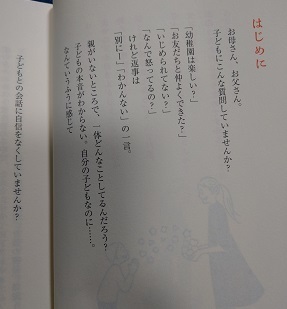 はじめに
お母さん、お父さん。
子どもにこんな質問していませんか?
「幼稚園は楽しい?」
「お友だちと仲よくできた?」
「いじめられてない?」
「なんで怒ってるの?」
けれど返事は
「別にー」「わかんない」の一言。
親がいないところで、一体どんなことしてるんだろう?
子どもの本音がわからない。自分の子どもなのに……。
なんていうふうに感じて
子どもとの会話に自信をなくしていませんか?